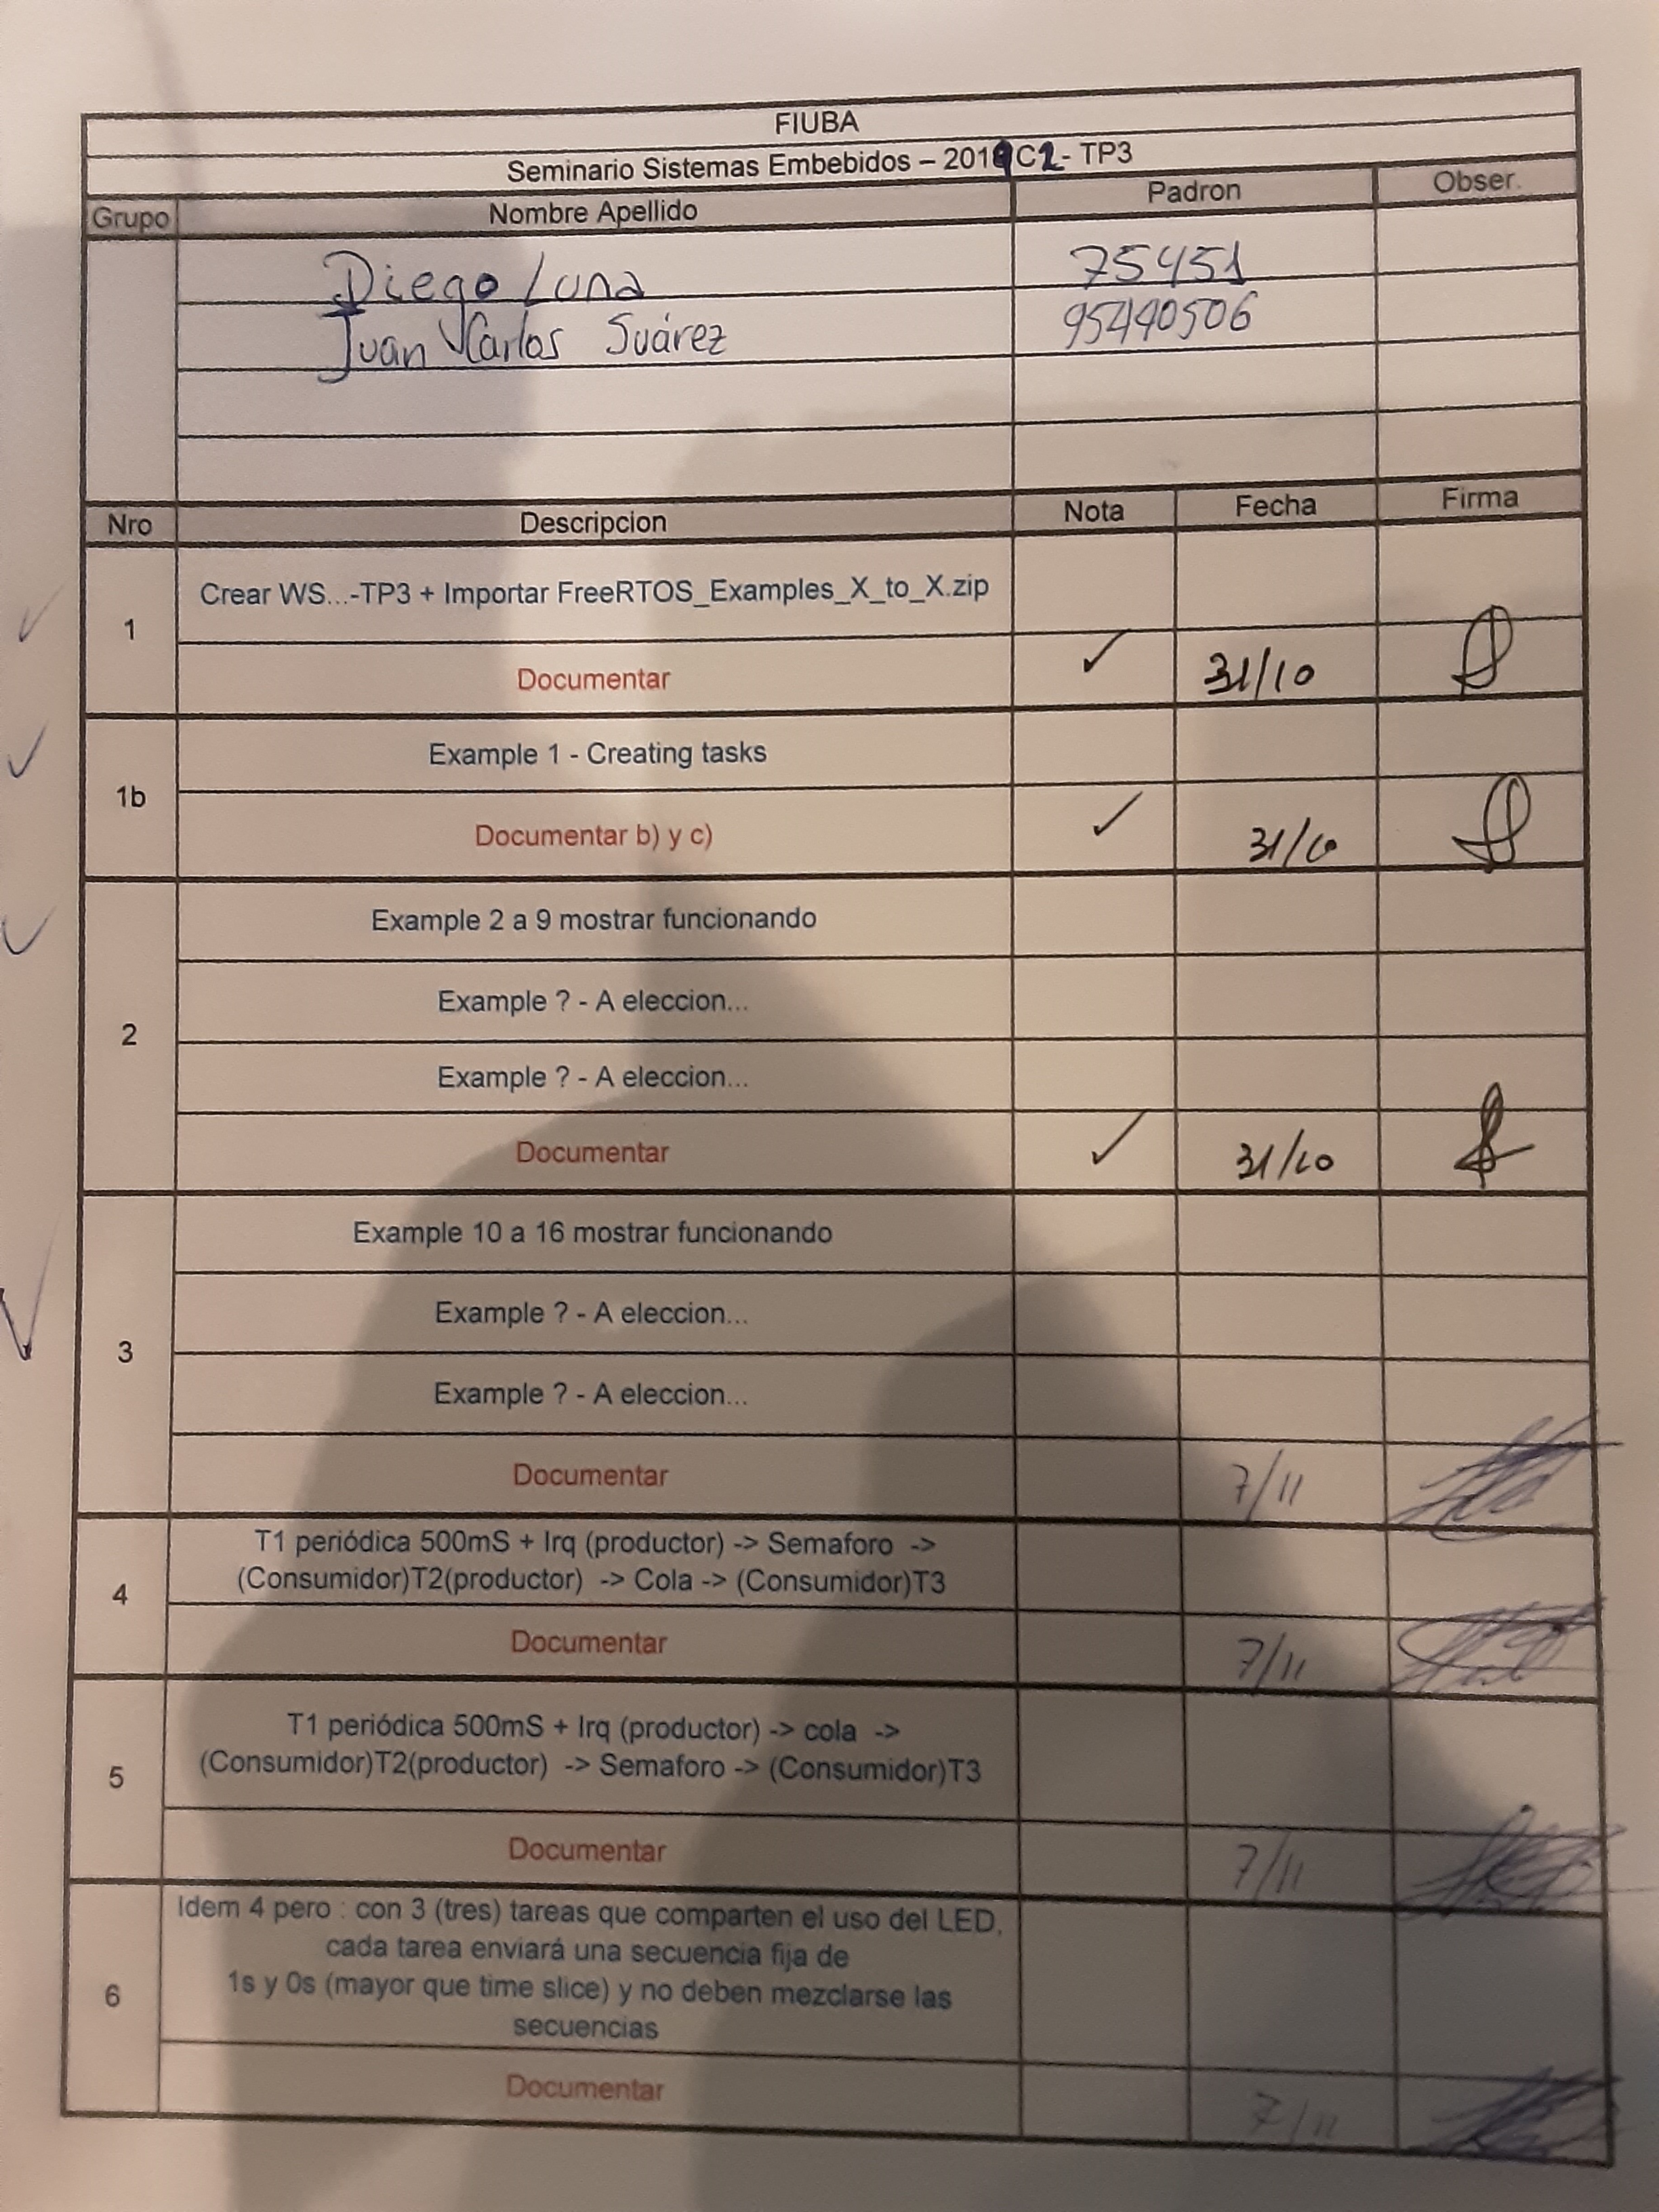 FIUBA
Seminario Sistemas Embebidos – 2019 C2 - TP3
Grupo Nombre Apellido Padron Obser.
Diego Luna 75451
Juan Carlos Suárez 95440506
Nro Descripcion Nota Fecha Firma
Crear WS...-TP3 + Importar FreeRTOS_Examples_X_to_X.zip
1
Documentar ✓ 31/10
Example 1 - Creating tasks
1b
Documentar b) y c) ✓ 31/10
Example 2 a 9 mostrar funcionando
Example ? - A eleccion...
2
Example ? - A eleccion...
Documentar ✓ 31/10
Example 10 a 16 mostrar funcionando
Example ? - A eleccion...
3
Example ? - A eleccion...
Documentar 7/11
T1 periódica 500mS + Irq (productor) -> Semaforo ->
(Consumidor)T2(productor) -> Cola -> (Consumidor)T3
4
Documentar 7/11
T1 periódica 500mS + Irq (productor) -> cola ->
(Consumidor)T2(productor) -> Semaforo -> (Consumidor)T3
5
Documentar 7/11
Idem 4 pero : con 3 (tres) tareas que comparten el uso del LED,
cada tarea enviará una secuencia fija de
1s y 0s (mayor que time slice) y no deben mezclarse las
6
secuencias
Documentar 7/11